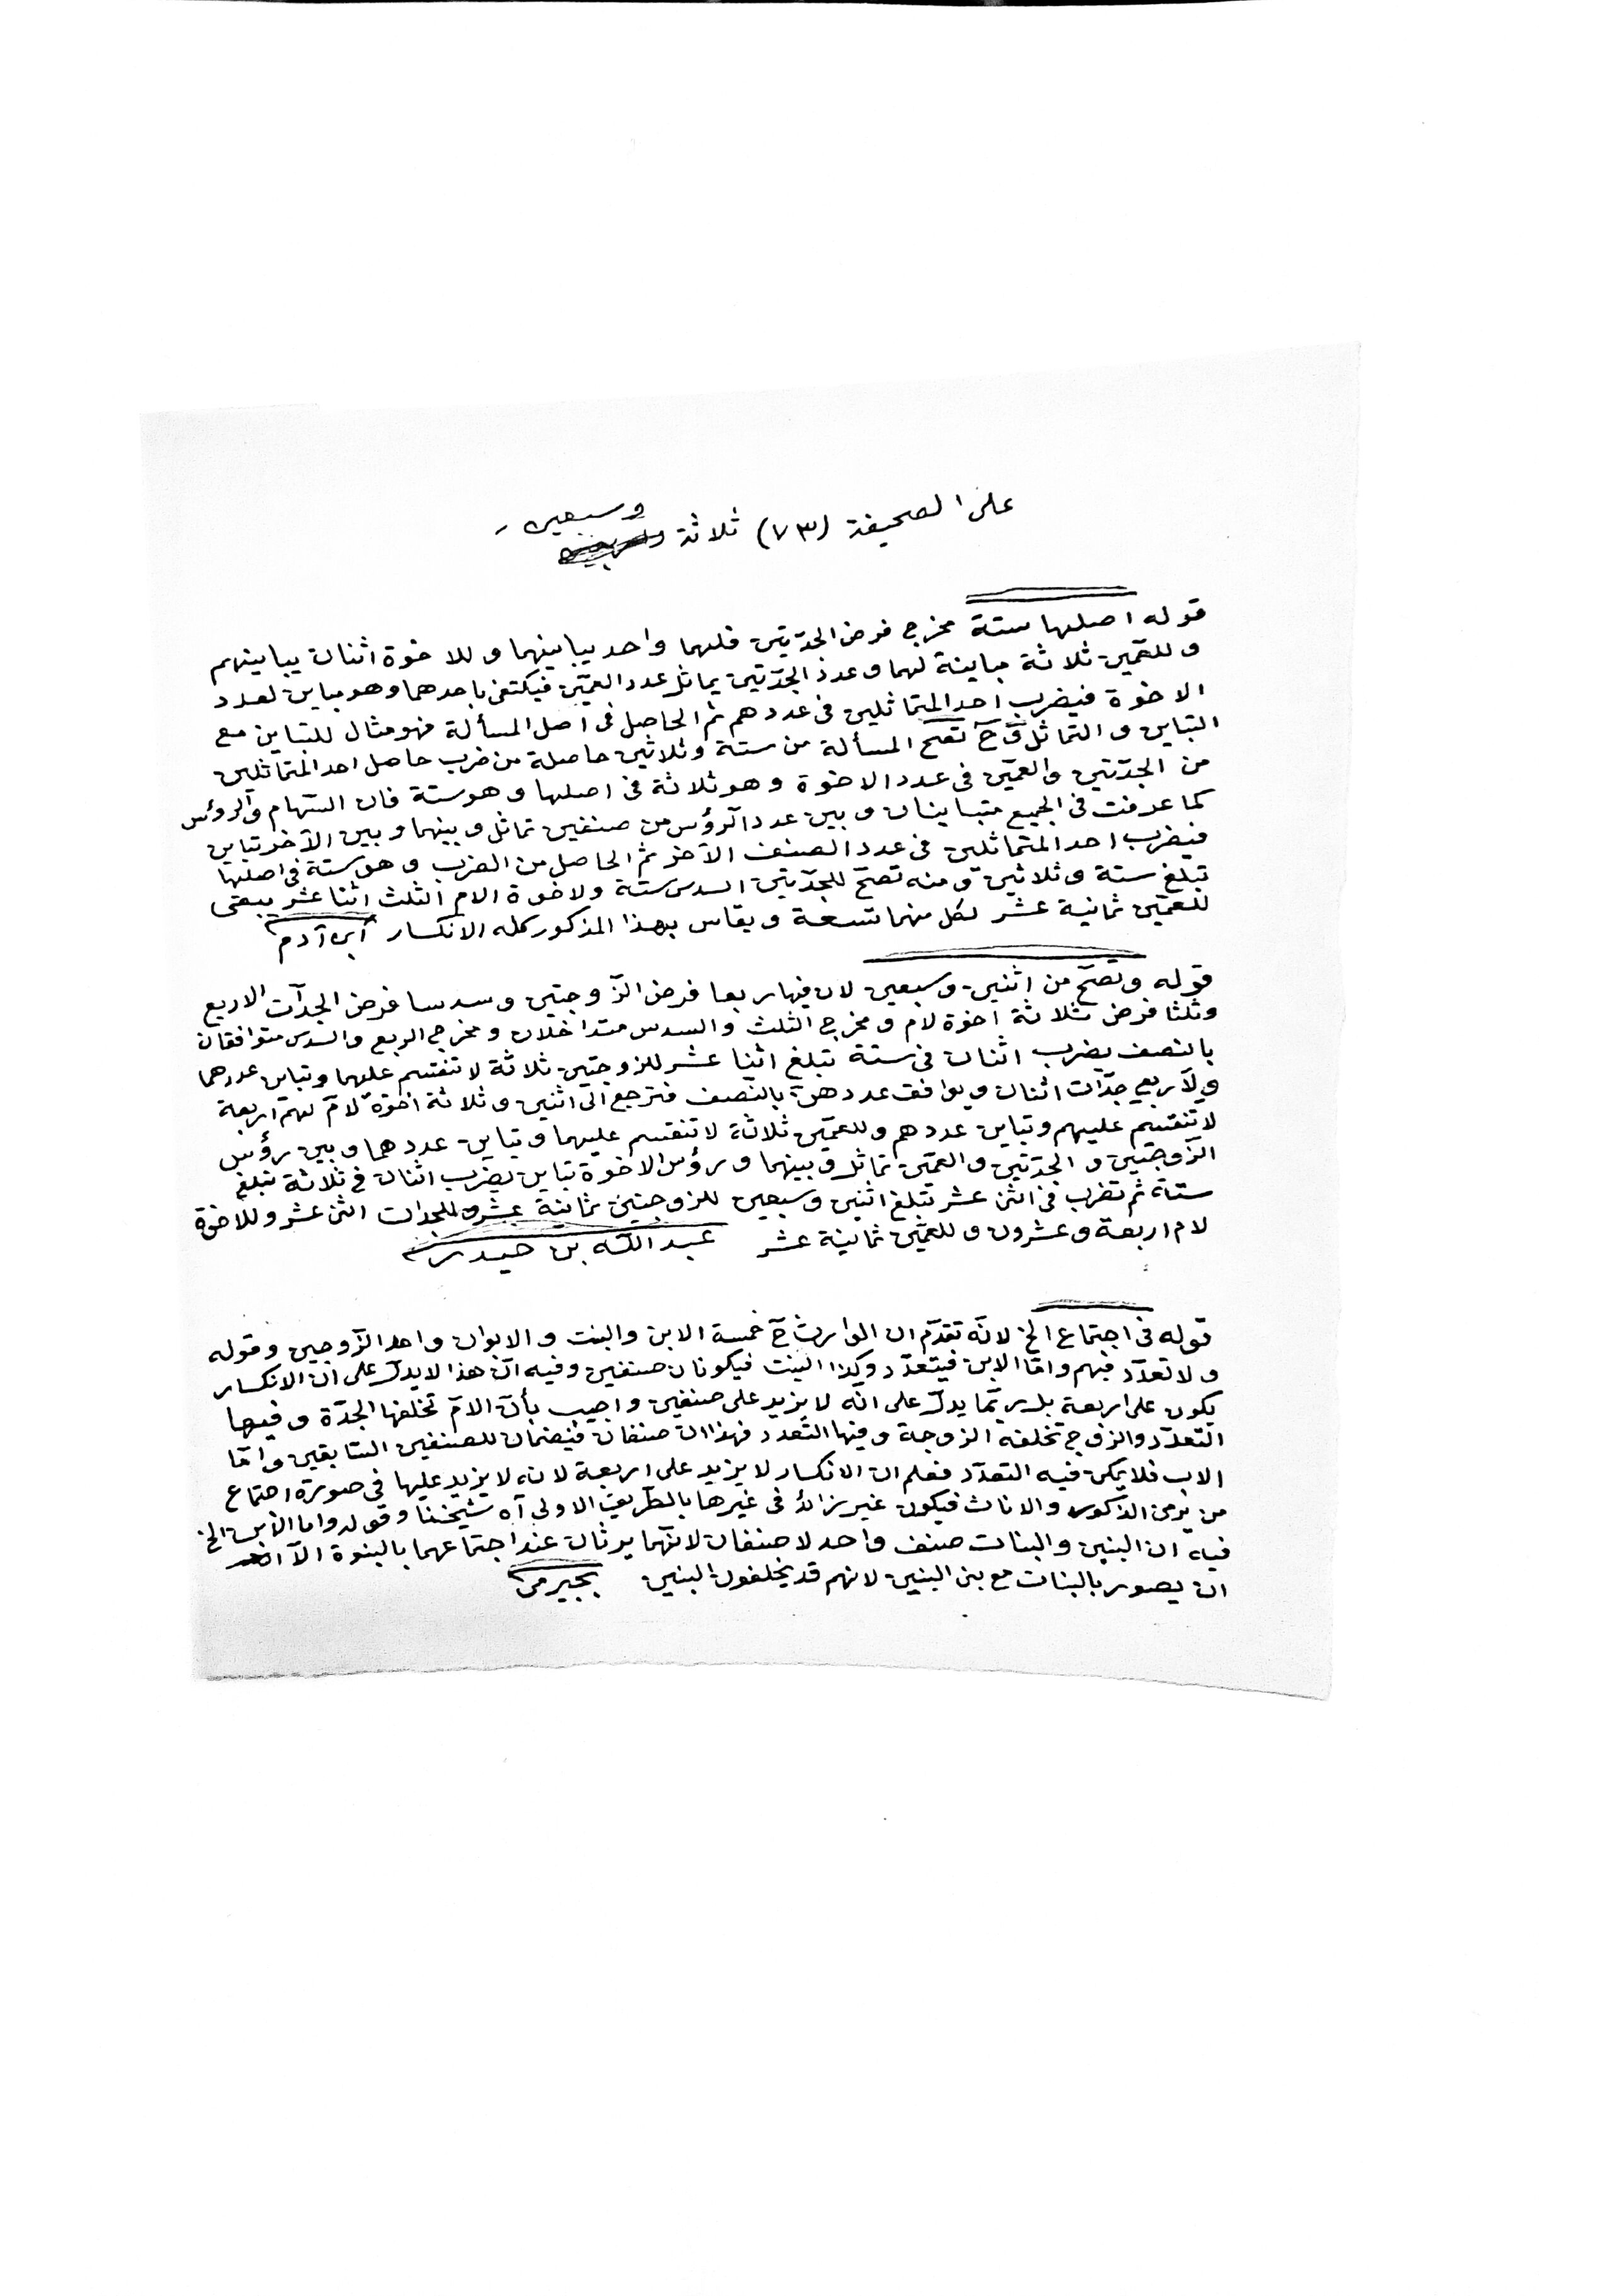 على الصحيفة (٧٣) ثلاثة وسبعين
قوله اصلها ستة مخرج فرض الجدّتين فلهما واحد يباينهما وللاخوة اثنان يباينهم
وللعمّين ثلاثة مباينة لهما وعدد الجدّتين يماثل عدد العمّين فيكتفى باحدهما وهو مباين لعدد
الاخوة فيضرب احد المتماثلين فى عددهم ثم الحاصل فى اصل المسألة فهو مثال للتباين مع
التباين والتماثل وح تصح المسألة من ستة وثلاثين حاصلة من ضرب حاصل احد المتماثلين
من الجدّتين والعمّين فى عدد الاخوة وهو ثلاثة فى اصلها وهو ستة فان السّهام والرؤس
كما عرفت فى الجميع متباينان وبين عدد الرؤس من صنفين تماثل وبينهما وبين الآخر تباين
فيضرب احد المتماثلين فى عدد الصنف الآخر ثم الحاصل من الضرب وهو ستة فى اصلها
تبلغ ستة وثلاثين ومنه تصحّ للجدّتين السدس ستة ولاخوة الام الثلث اثنا عشر يبقى
للعمّين ثمانية عشر لكل منهما تسعة ويقاس بهذا المذكور كله الانكسار ابن آدم
قوله وتصحّ من اثنين وسبعين لان فيها ربعا فرض الزّوجتين وسدسا فرض الجدّات الاربع
وثلثا فرض ثلاثة اخوة لام ومخرج الثلث والسدس متداخلان ومخرج الربع والسدس متوافقان
بالنصف يضرب اثنان فى ستة تبلغ اثنا عشر للزوجتين ثلاثة لا تنقسم عليهما وتباين عددهما
ولاربع جدّات اثنان ويوافق عددهنّ بالنّصف فترجع الى اثنين وثلاثة اخوة لامّ لهم اربعة
لا تنقسم عليهم وتباين عددهم وللعمّين ثلاثة لا تنقسم عليهما وتباين عددهما وبين رؤس
الزّوجتين والجدّتين والعمّين تماثل وبينهما ورؤس الاخوة تباين يضرب اثنان فى ثلاثة تبلغ
ستة ثم تضرب فى اثنى عشر تبلغ اثنين وسبعين للزوجتين ثمانية عشر وللجدات اثنى عشر وللاخوة
لام اربعة وعشرون وللعمّين ثمانية عشر عبد الله بن حيدر
قوله فى اجتماع الخ لانّه تقدّم ان الوارث ح خمسة الابن والبنت والابوان واحد الزّوجين وقوله
ولا تعدّد فيهم وامّا الابن فيتعدّد وكذا البنت فيكونان صنفين وفيه انّ هذا لا يدلّ على انّ الانكسار
يكون على اربعة بل ربّما يدلّ على انّه لا يزيد على صنفين واجيب بأنّ الامّ تخلفها الجدّة وفيها
التعدّد والزوج تخلفه الزوجة وفيها التعدد فهذان صنفان فيضمّان للصنفين السّابقين وامّا
الاب فلا يمكن فيه التعدّد فعلم ان الانكسار لا يزيد على اربعة لانه لا يزيد عليها فى صورة اجتماع
من يرث من الذكور والاناث فيكون غير زائد فى غيرها بالطّريق الاولى اه شيخنا وقوله واما الابن الخ
فيه ان البنين والبنات صنف واحد لا صنفان لانّهما يرثان عند اجتماعهما بالبنوة الّا
ان يصور بالبنات مع بنى البنين لانهم قد يخلفون البنين بجيرمى